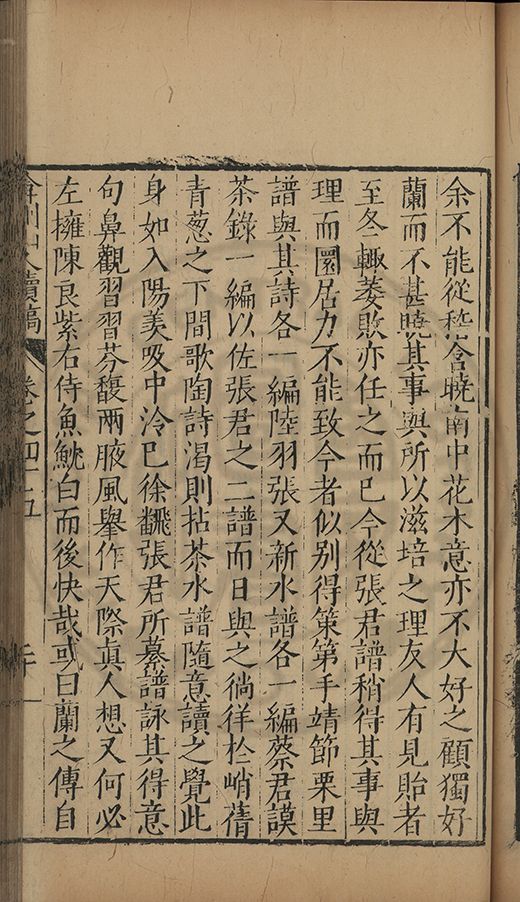 余不能從嵇含曉南中花木意亦不大好之顧獨好
蘭而不甚曉其事與所以滋培之理友人有見貽者
至冬輙萎敗亦任之而已今從張君譜稍得其事與
理而圃居力不能致今者似别得策第手靖節栗里
譜與其詩各一編陸羽張又新水譜各一編蔡君謨
茶錄一編以佐張君之二譜而日與之徜徉於峭蒨
青葱之下間歌陶詩渴則拈茶水譜隨意讀之覺此
身如入陽羡吸中泠已徐飜張君所纂譜詠其得意
句鼻觀習習芬馥兩腋風舉作天際眞人想又何必
左擁陳良紫右侍魚魫白而後快哉或曰蘭之傳自
弇州山人續稿
卷之四十五